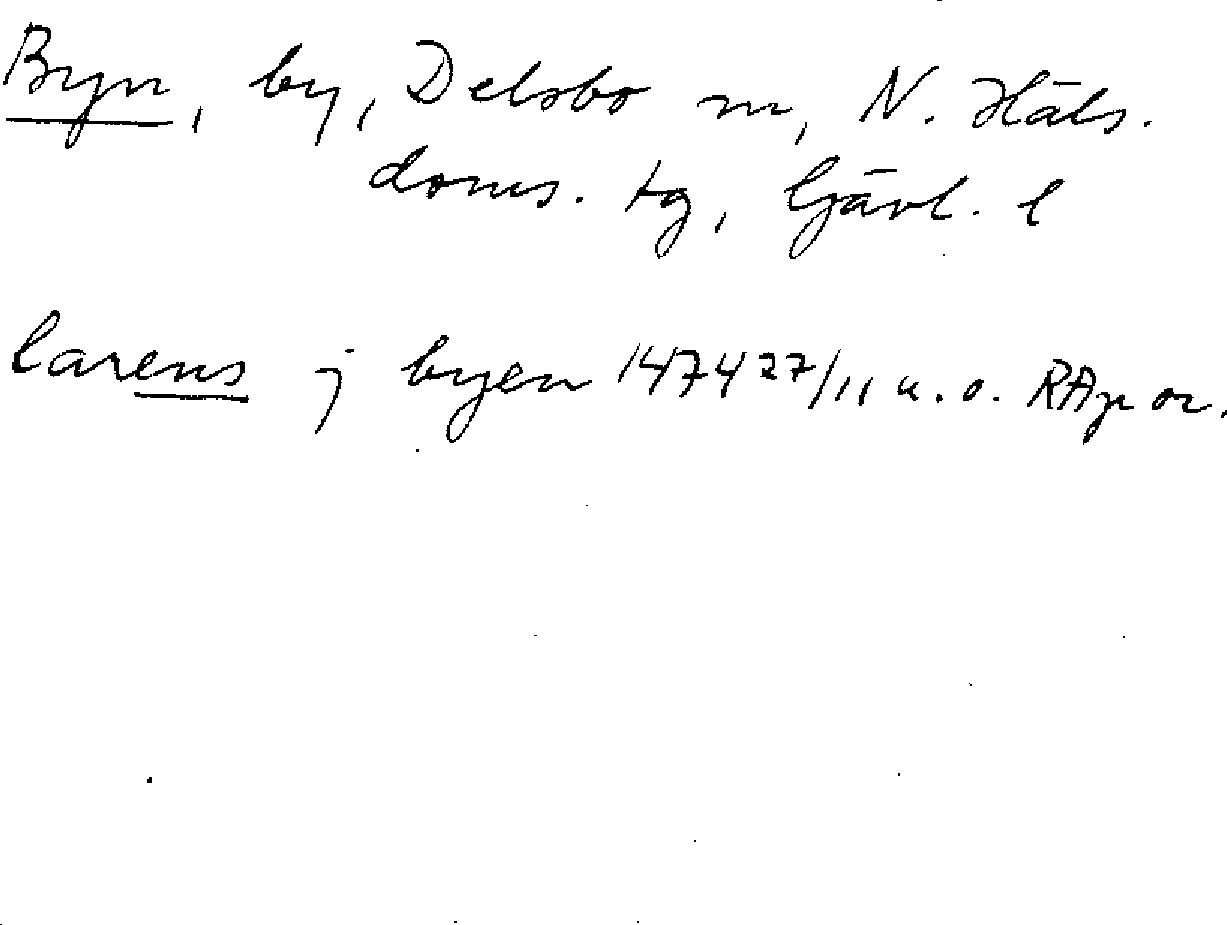 Byn, by, Delsbo sn, N. Häls.
doms. tg, Gävl. l
larens j byen 1474 27/11 u. o. RAp or.